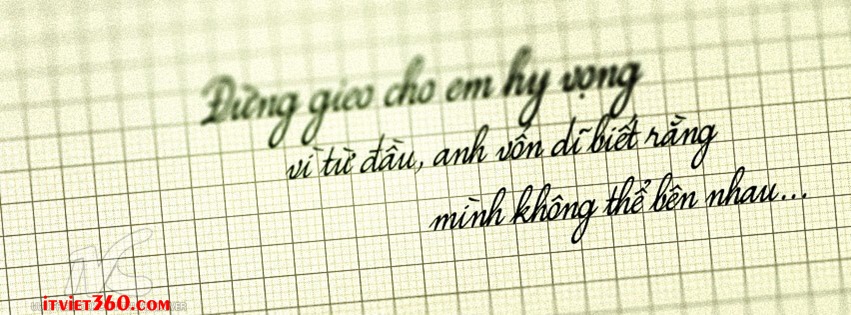 Đừng gieo cho em hy vọng
vì từ đầu, anh vốn dĩ biết rằng
mình không thể bên nhau...
iTViET360.COM